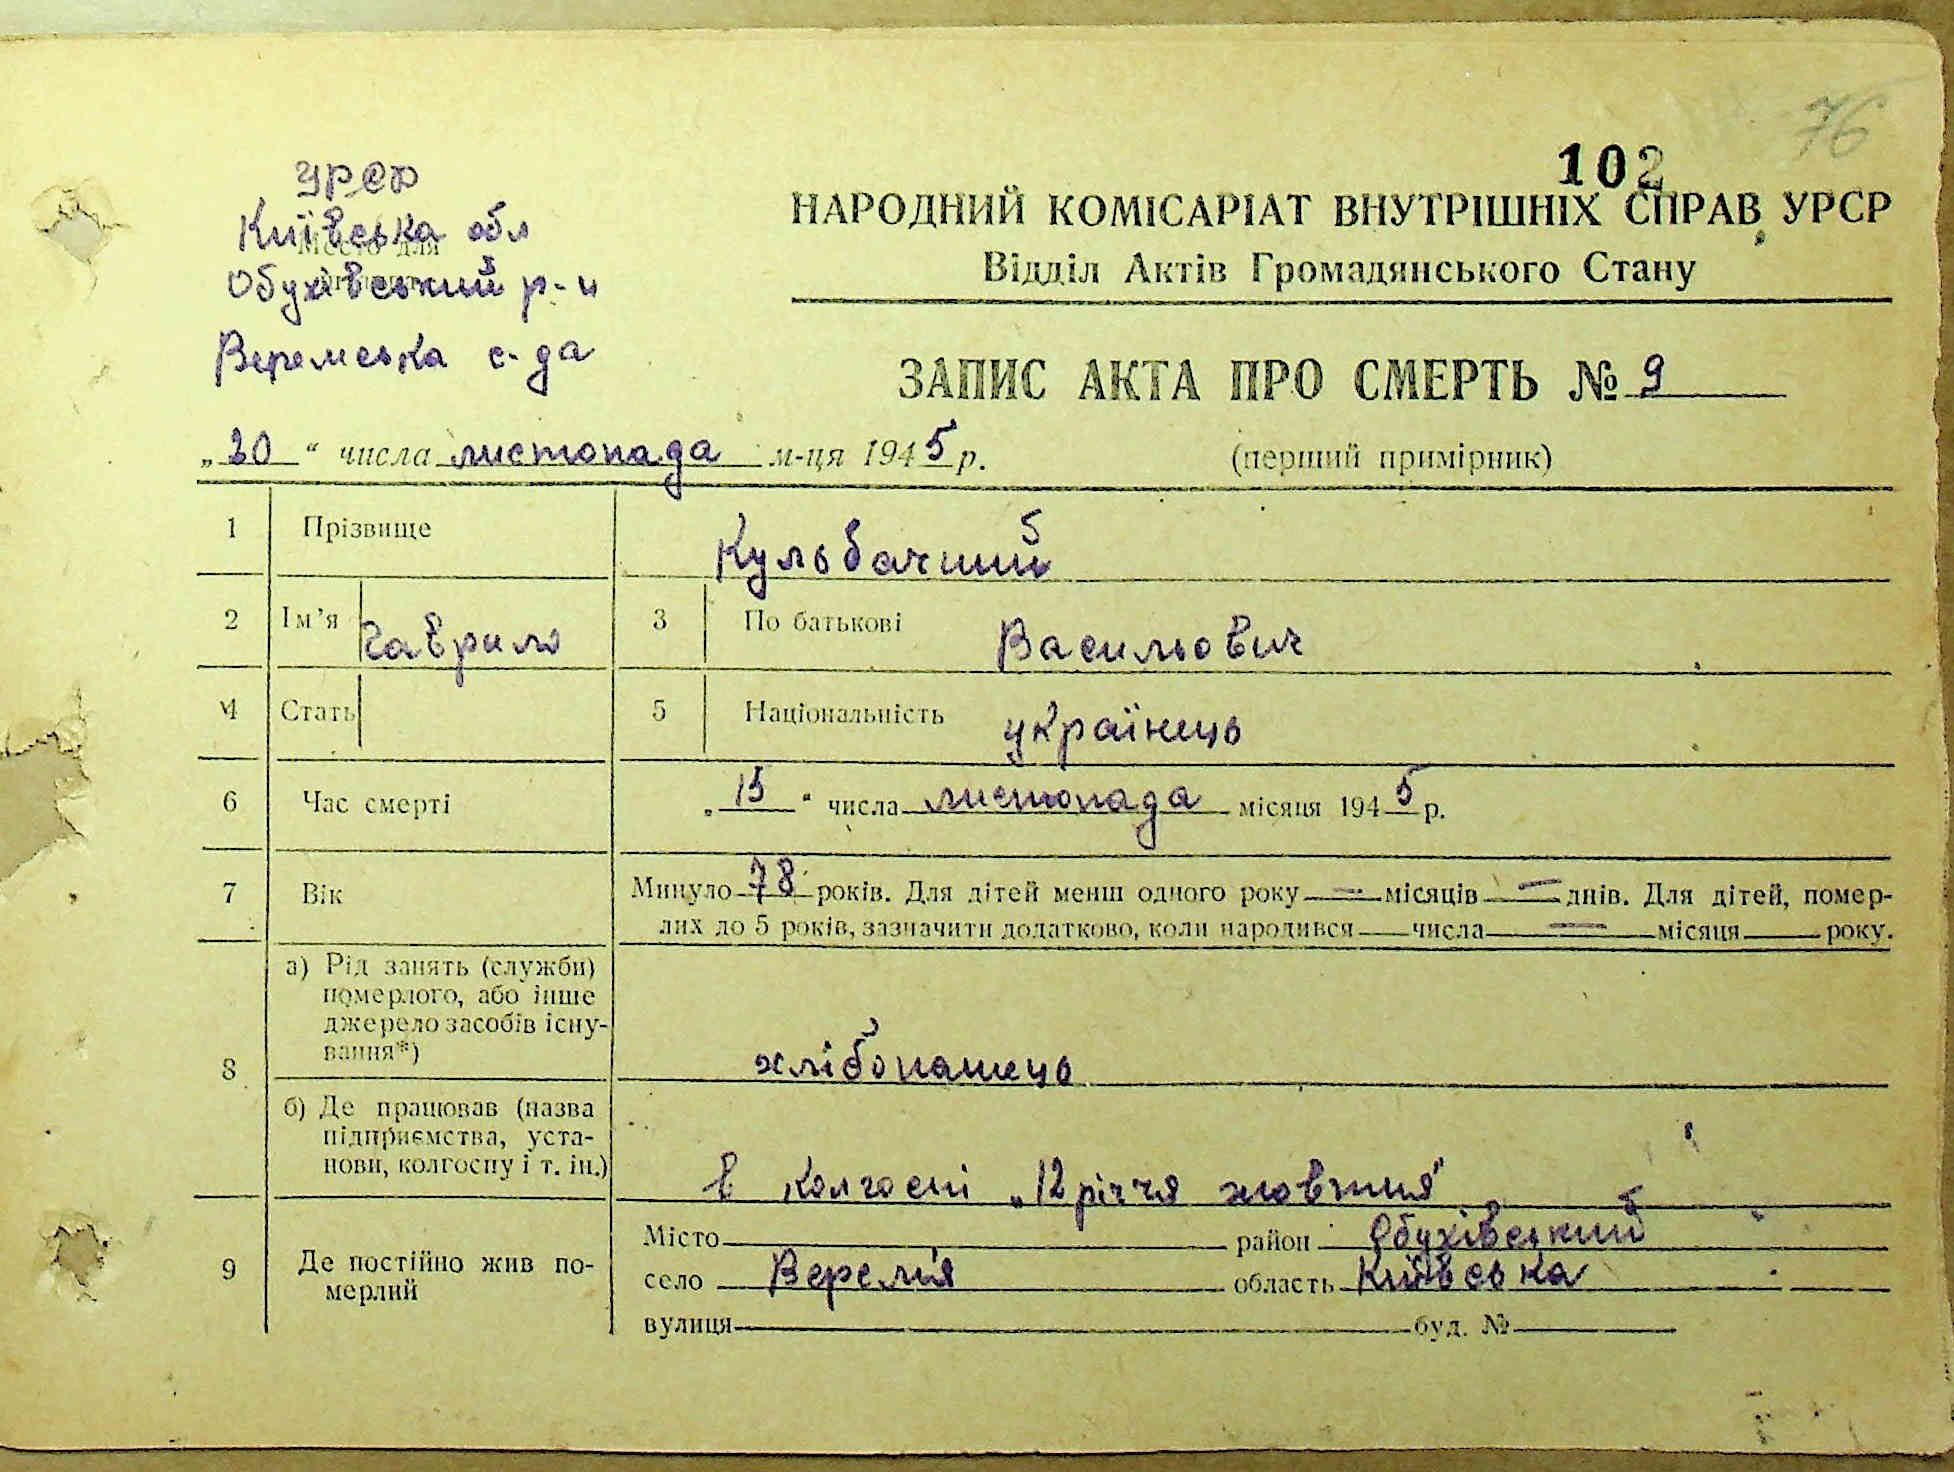 76
102
УРСР
Київська обл
Місто для
Обухівський р-н
Веремська с-да
НАРОДНИЙ КОМІСАРІАТ ВНУТРІШНІХ СПРАВ УРСР
Відділ Актів Громадянського Стану
ЗАПИС АКТА ПРО СМЕРТЬ № 9
„20“ числа листопада м-ця 1945 р. (перший примірник)
1 Прізвище Кульбачний
2 Ім'я Гаврило 3 По батькові Васильович
4 Стать 5 Національність українець
6 Час смерті „15“ числа листопада місяця 1945 р.
7 Вік Минуло 78 років. Для дітей менш одного року — місяців — днів. Для дітей, помер-
лих до 5 років, зазначити додатково, коли народився числа — місяця року.
8 а) Рід занять (служби)
померлого, або інше
джерело засобів існу-
вання*) хлібопашець
б) Де працював (назва
підприємства, уста-
нови, колгоспу і т. ін.) в колгоспі „12 річчя жовтня"
9 Де постійно жив по-
мерлий
Місто район Обухівський
село Веремія область Київська
вулиця буд. №